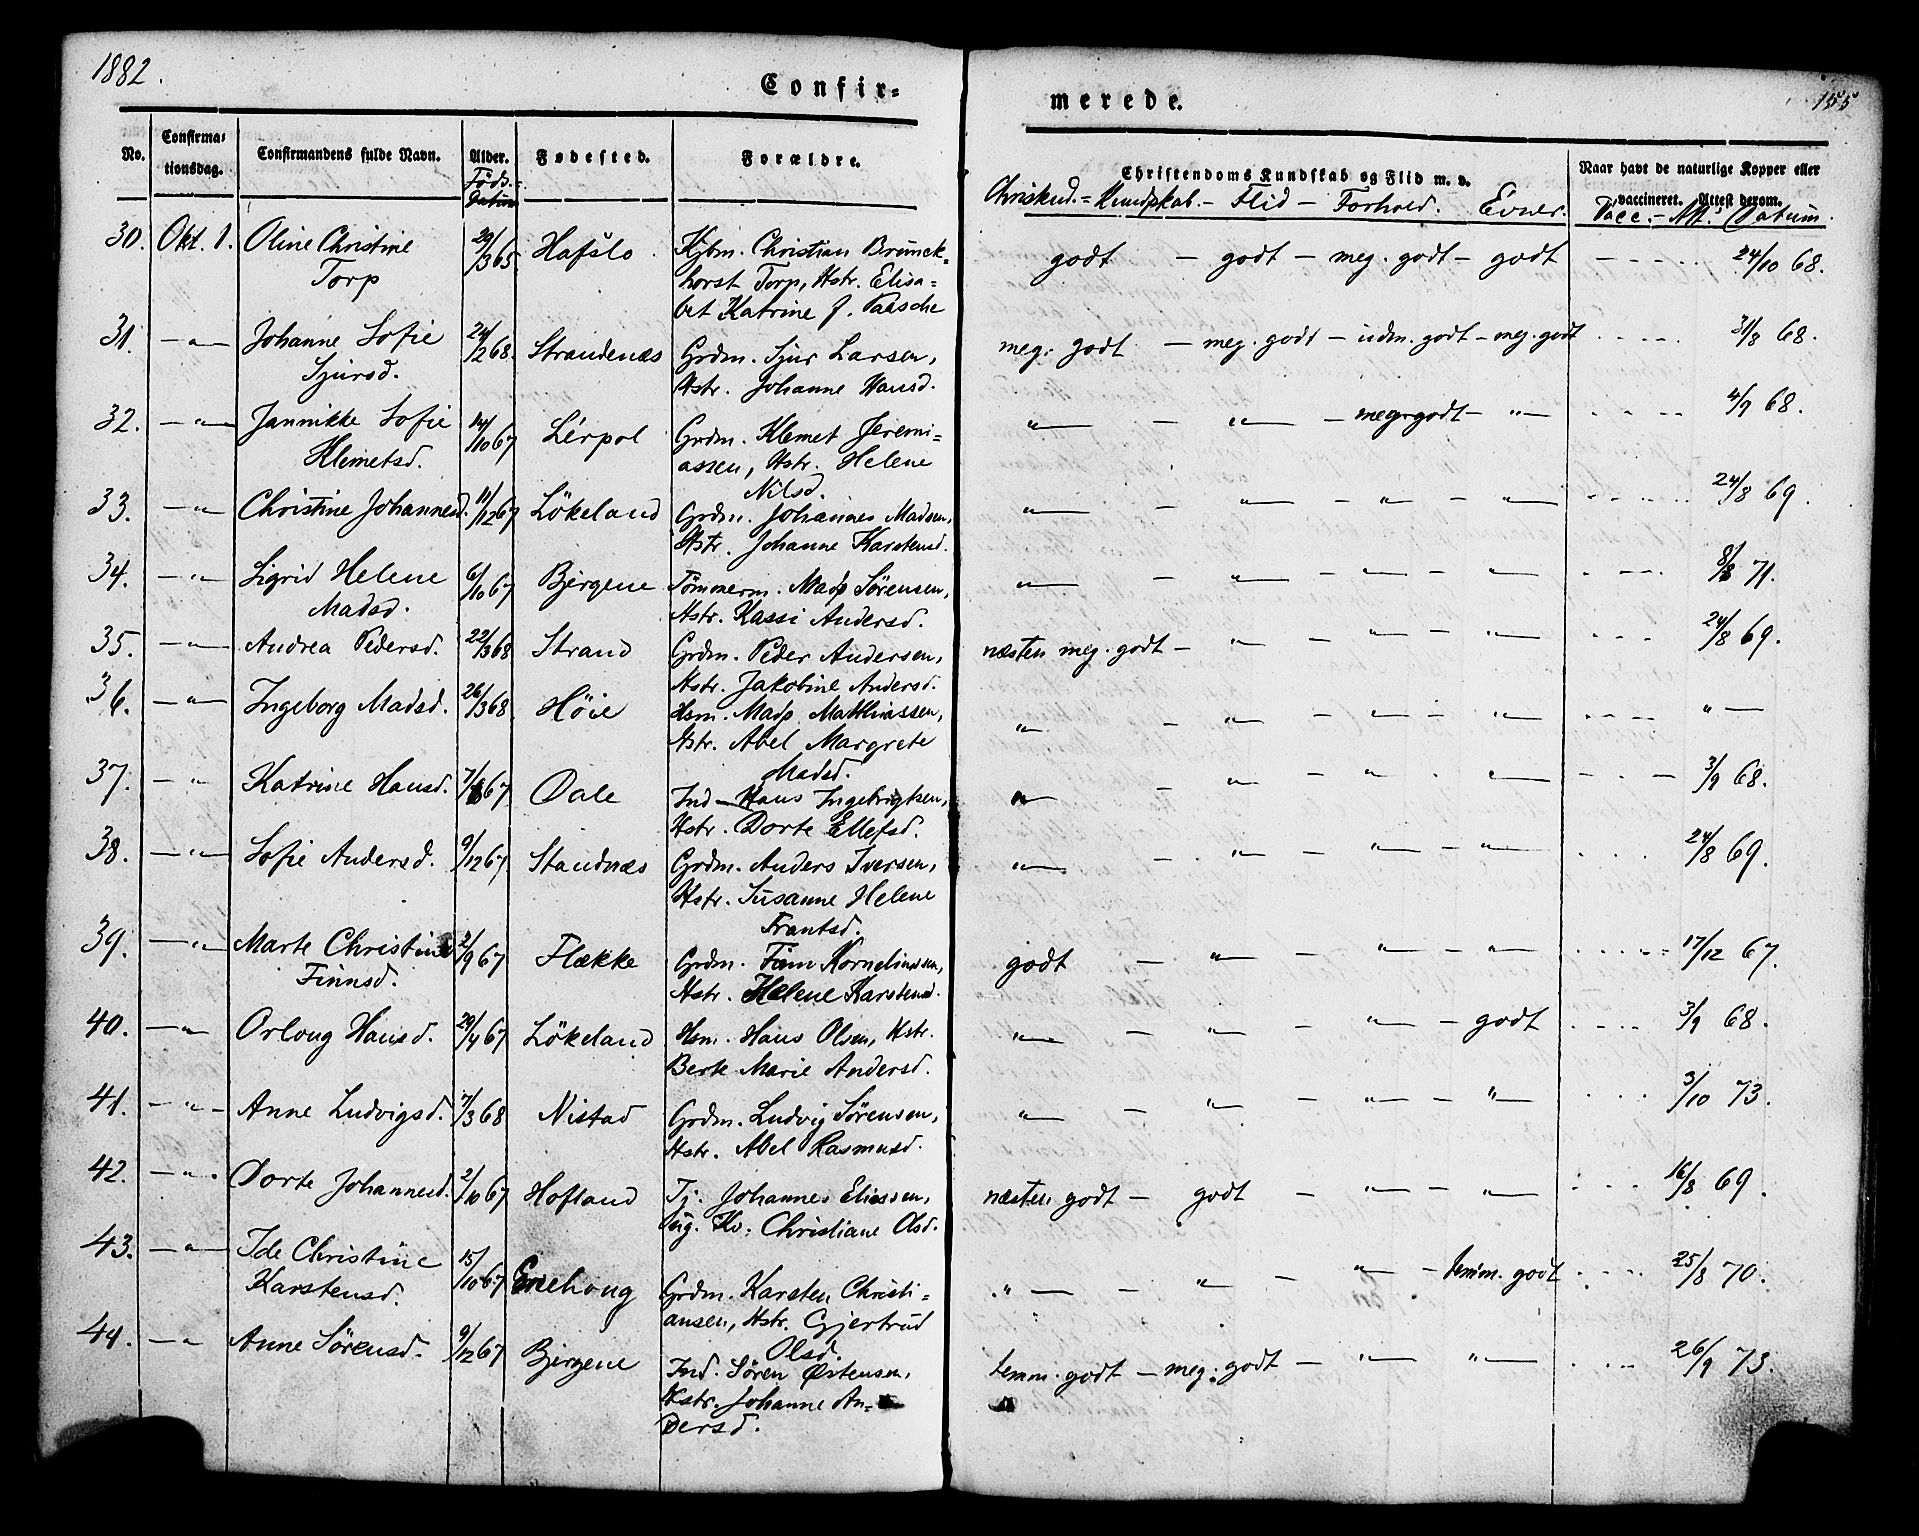 1882.
Confir-
merede.
155
No.
Confirma-
tionsdag.
Confirmandens fulde Navn.
Alder.
Føds.-
datum
Fødested.
Forældre.
Christendoms Kundskab og Flid m. v.
Kundskab. - Flid - Forhold. Evner.
Naar havt de naturlige Kopper eller
vaccineret. Attest derom.
Vacc. - Att. Datum.
30. Okt. 1. Oline Christine 29/3 65 Hafslo. Kjbm. Christian Brunck- godt - godt - meg. godt - godt 24/10 68.
Torp horst Torp, Hstr. Elisa-
bet Katrine f. Paasche
31. - " - Johanne Sofie 24/2 68. Strandenæs Grdm. Sjur Larsen, meg. godt - meg. godt - udm. godt - meg. godt 31/8 68.
Sjursd. Hstr. Johanne Hansd.
32. - " - Jannikke Sofie 14/10 67 Lérpol Grdm. Klemet Jeremi- " - " - meg. godt - " 4/9 68.
Klemetsd. assen, Hstr. Helene
Nilsd.
33. - " - Christine Johannesd. 11/12 67 Lökeland Grdm. Johannes Madsen, " - " - " - " 24/8 69.
Hstr. Johanne Karstensd.
34. - " - Sigrid Helene 6/10 67 Bjergene Tömmerm. Mads Sörensen, " - " - " - " 8/8 71.
Madsd. Hstr. Kassi Andersd.
35. - " - Andrea Pedersd. 22/3 68 Strand Grdm. Peder Andersen, næsten meg. godt - " - " - " 24/8 69.
Hstr. Jakobine Andersd.
36. - " - Ingeborg Madsd. 26/3 68. Höie Hsm. Mads Matthiassen, " - " - " - " " -
Hstr. Abel Margrete
Madsd.
37. - " Katrine Hansd. 7/8 67 Dale Ind - Hans Ingebrigtsen, " - " - " . " 3/9 68.
Hstr. Dorte Ellefsd.
38. - " - Sofie Andersd. 9/12 67. Standnæs Grdm. Anders Iversen, " - " - " - " 24/8 69.
Hstr. Susanne Helene
Frantsd.
39. - " - Marte Christine 2/9 67 Flække Grdm. Finn Kornelinssen, godt - " - " - " 17/12 67.
Finnsd. Hstr. Helene Karstensd.
40. - " - Orloug Hansd. 29/4 67 Lökeland Hsm. Hans Olsen, Hstr. " - " - " - godt 3/9 68.
Berte Marie Andersd.
41. - " - Anne Ludvigsd. 7/3 68 Nistad Grdm. Ludvig Sörensen, " - " - " - " 3/10 73.
Hstr. Abel Rasmusd.
42. - " - Dorte Johannesd. 2/10 67 Hofland Tj. Johannes Eliassen, næsten godt - godt - " - " 16/8 69.
ug. Kv: Christiane Olsd.
43. - " - Ide Christine 15/10 67 Enehoug Grdm. Karsten Christi- " - " - " - temm. godt 25/8 70.
Karstensd. ansen, Hstr. Gjertrud
Olsd.
44. - " Anne Sörensd. 9/12 67 Bjergene Ind. Sören Östensen, temm. godt - meg. godt - " " 26/9 73.
Hstr. Johanne An-
dersd.